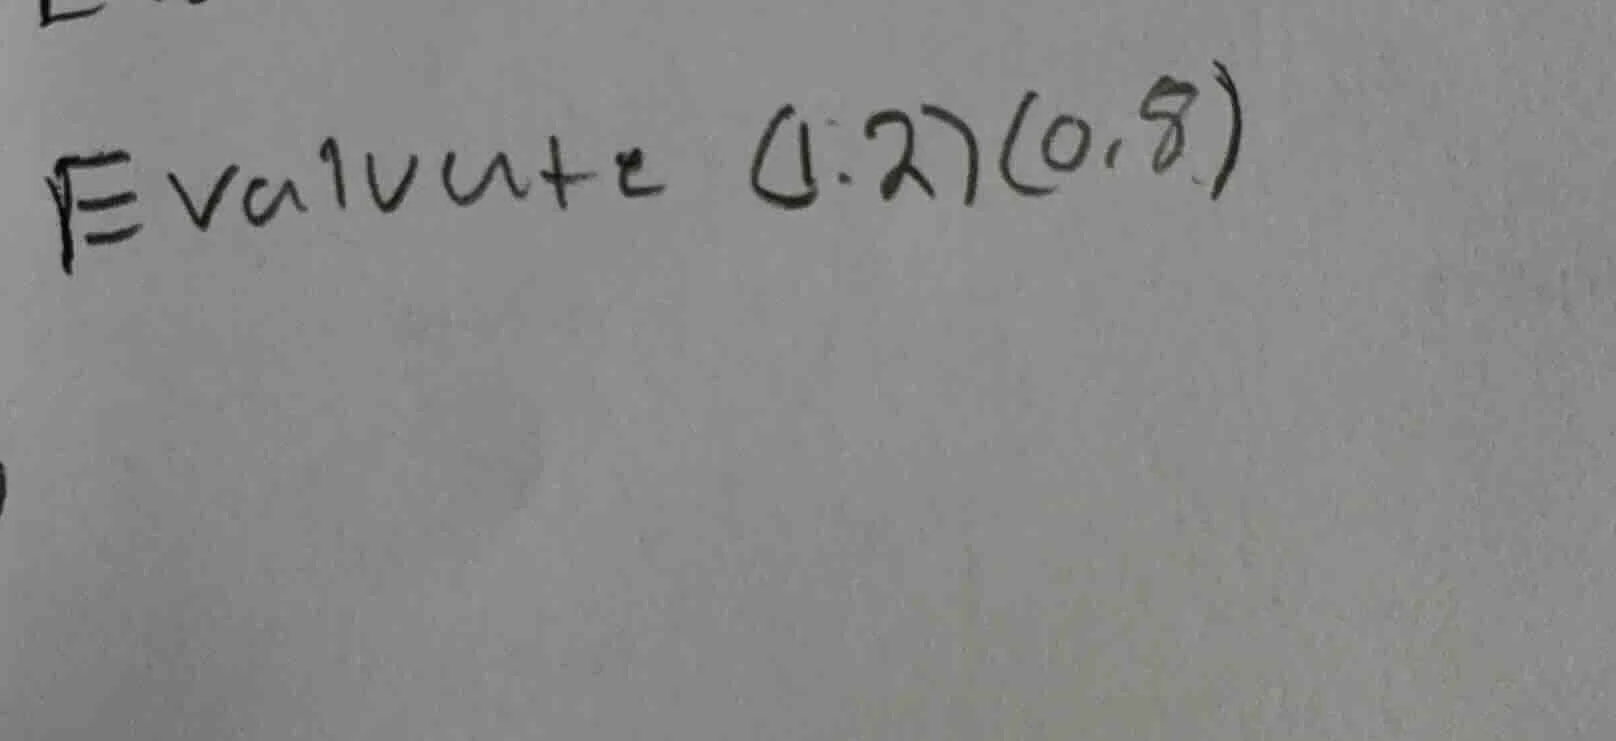 Evaluate (1.2)(0.8)